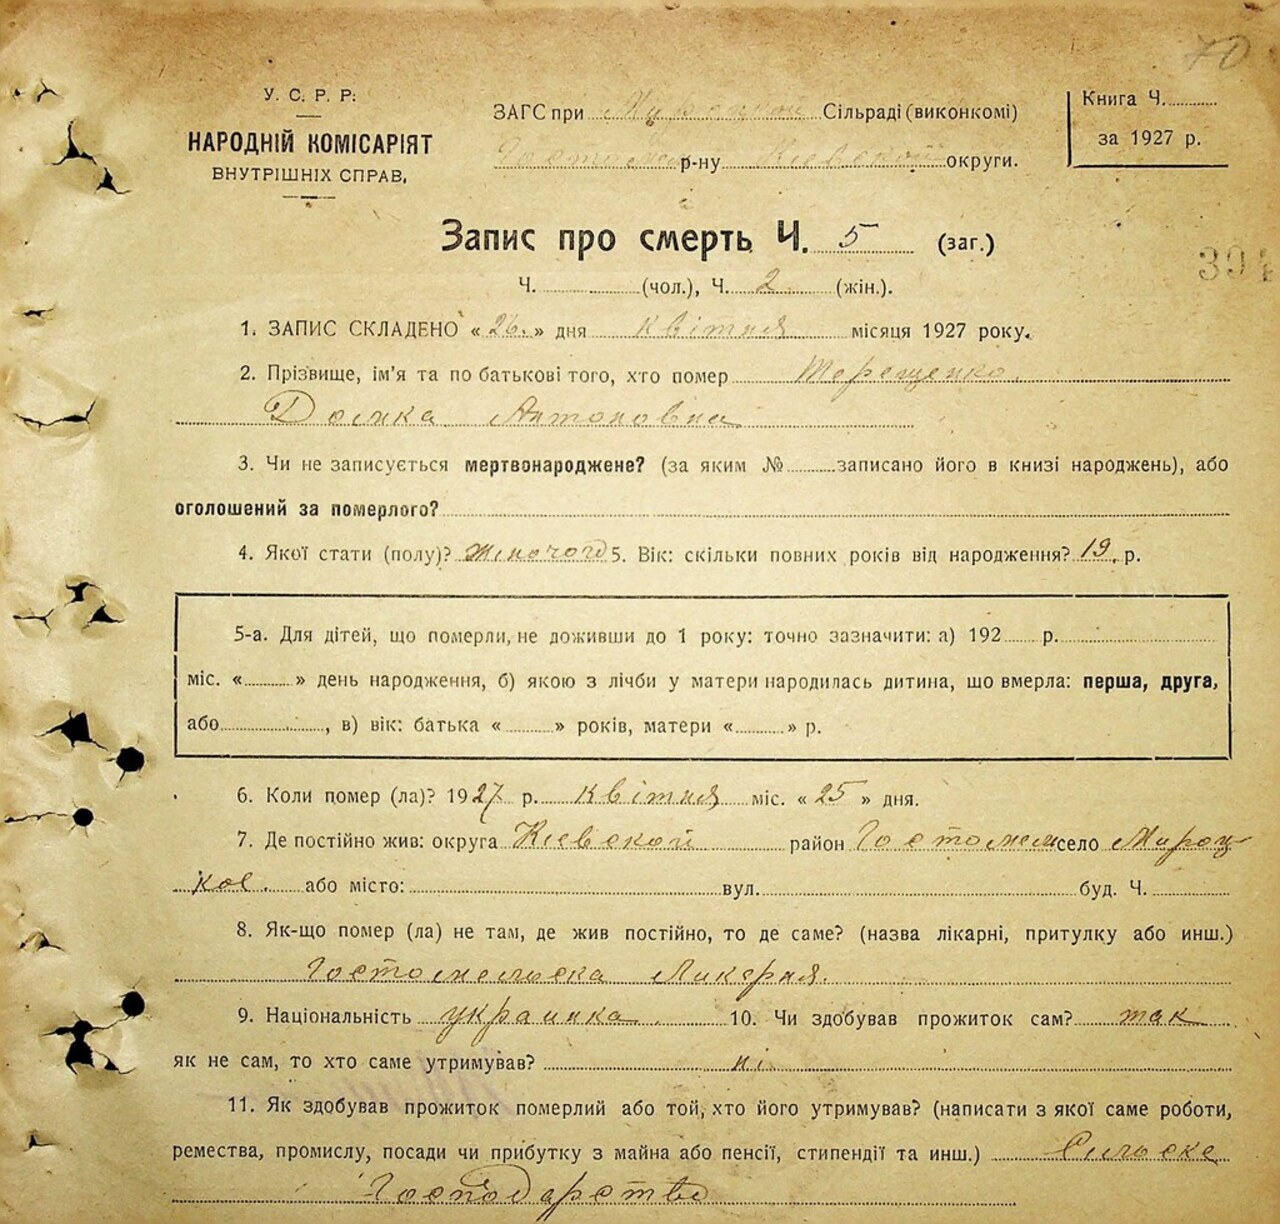 70
У. С. Р. Р.
НАРОДНІЙ КОМІСАРІЯТ
ВНУТРІШНІХ СПРАВ,
ЗАГС при Мироцкой Сільраді (виконкомі)
Гостомел р-ну Киевской округи.
Книга Ч.
за 1927 р.
Запис про смерть Ч. 5 (заг.)
394
Ч. (чол.), Ч. 2 (жін.).
1. ЗАПИС СКЛАДЕНО «26.» дня квітня місяця 1927 року.
2. Прізвище, ім'я та по батькові того, хто помер Терещенко
Домка Антоновна
3. Чи не записується мертвонароджене? (за яким № записано його в книзі народжень), або
оголошений за померлого?
4. Якої стати (полу)? жіночого 5. Вік: скільки повних років від народження? 19. р.
5-а. Для дітей, що померли, не доживши до 1 року: точно зазначити: а) 192 р.
міс. « » день народження, б) якою з лічби у матери народилась дитина, що вмерла: перша, друга,
або , в) вік: батька « » років, матери « » р.
6. Коли помер (ла)? 1927 р. квітня міс. «25» дня.
7. Де постійно жив: округа Киевской район Гостомел село Мироц
кое. або місто: вул. буд. Ч.
8. Як-що помер (ла) не там, де жив постійно, то де саме? (назва лікарні, притулку або инш.)
Гостомельска Ликерня.
9. Національність украинка. 10. Чи здобував прожиток сам? так
як не сам, то хто саме утримував? ні
11. Як здобував прожиток померлий або той, хто його утримував? (написати з якої саме роботи,
ремества, промислу, посади чи прибутку з майна або пенсії, стипендії та инш.) Сильске
Господарство